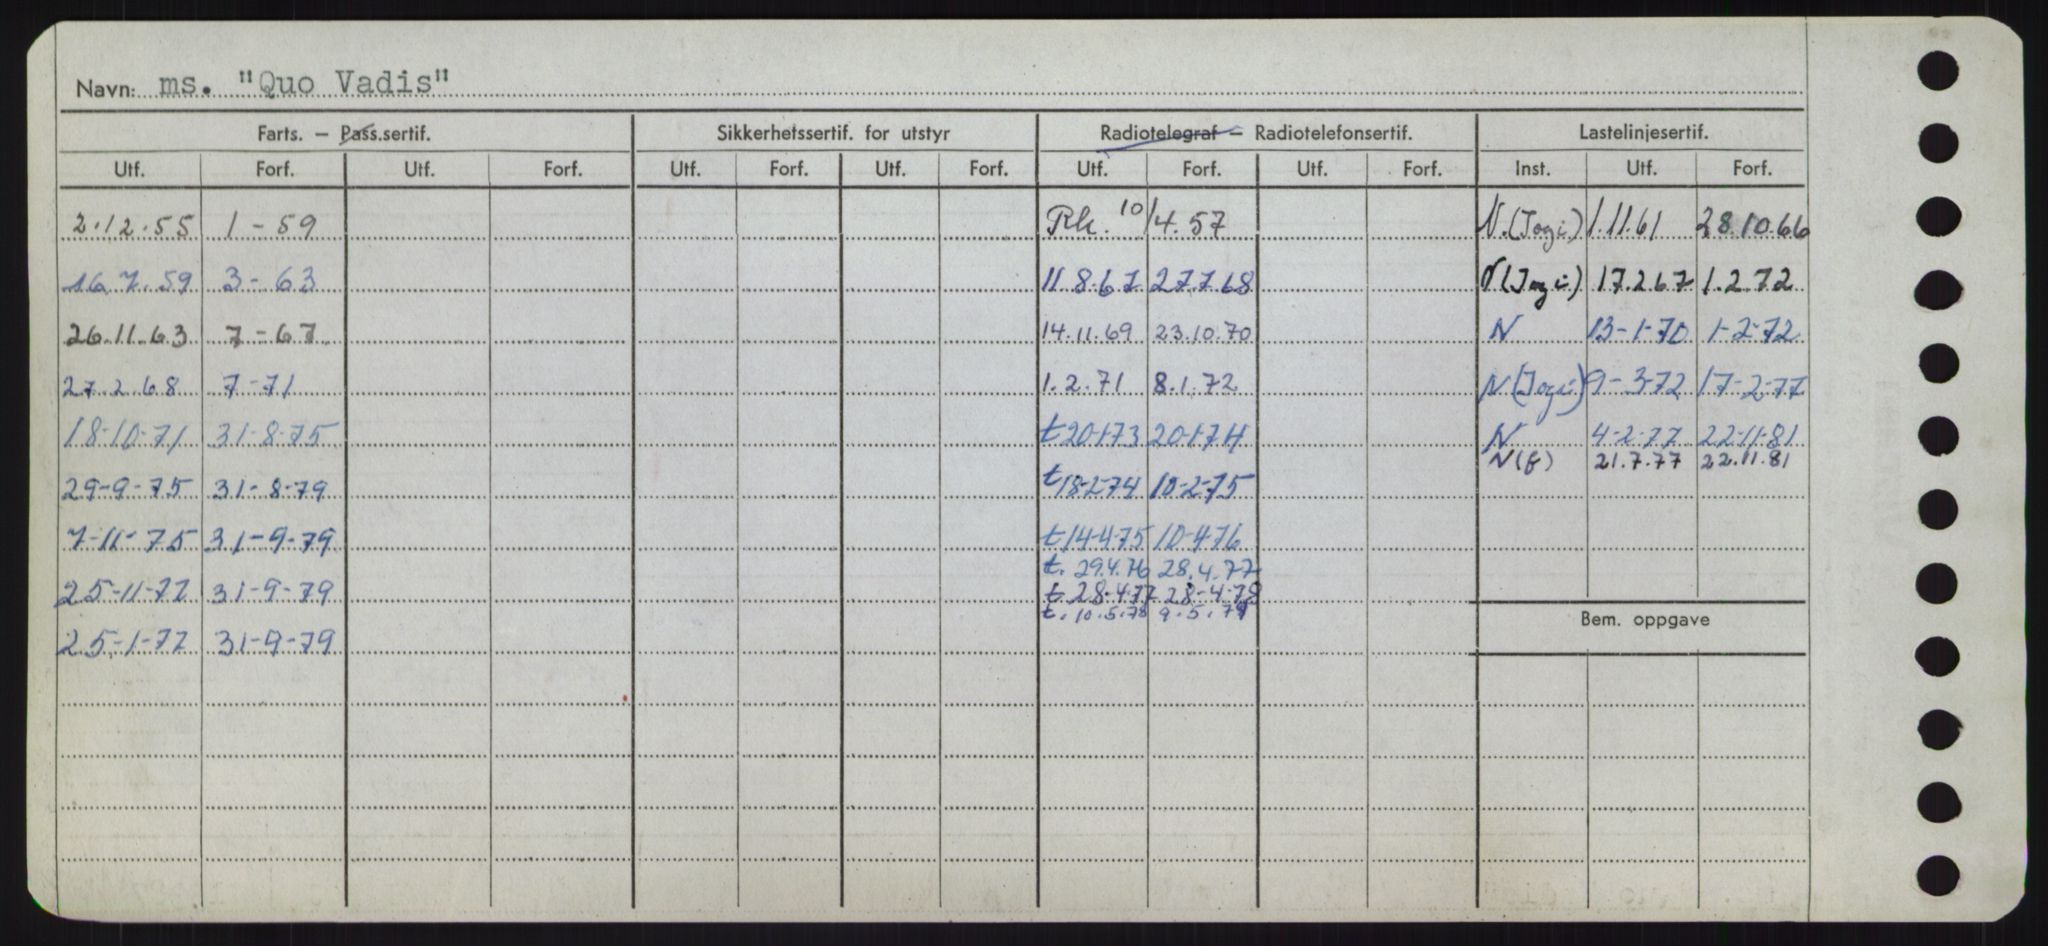 Navn: ms. "Quo Vadis"
Farts. — Pass.sertif. Sikkerhetssertif. for utstyr Radiotelegraf — Radiotelefonsertif. Lastelinjesertif.
Utf. Forf. Utf. Forf. Utf. Forf. Utf. Forf. Utf. Forf. Utf. Forf. Inst. Utf. Forf.
2.12.55 1-59 Rk. 10/4.57 N. 1.11.61 28.10.66
16.7.59 3-63 11.8.67 27.7.68 17.2.67 1.2.72
26.11.63 7-67 14.11.69 23.10.70 N 13-1-70 1-2-72
27.2.68 7-71 1.2.71 8.1.72 N 9-3-72 17-2-77
18-10-71 31-8-75 t20-1-73 20-1-74 N 4-2-77 22-11-81
N(f) 21.7.77 22.11.81
29-9-75 31-8-79 t18-2-74 10-2-75
7-11-75 31-9-79 t14-4-75 10-4-76
t. 29.4.76 28.4.77
25-11-77 31-9-79 t 28-4-77 28-4-78
t. 10.5.78 9.5.79
Bem. oppgave
25-1-77 31-9-79